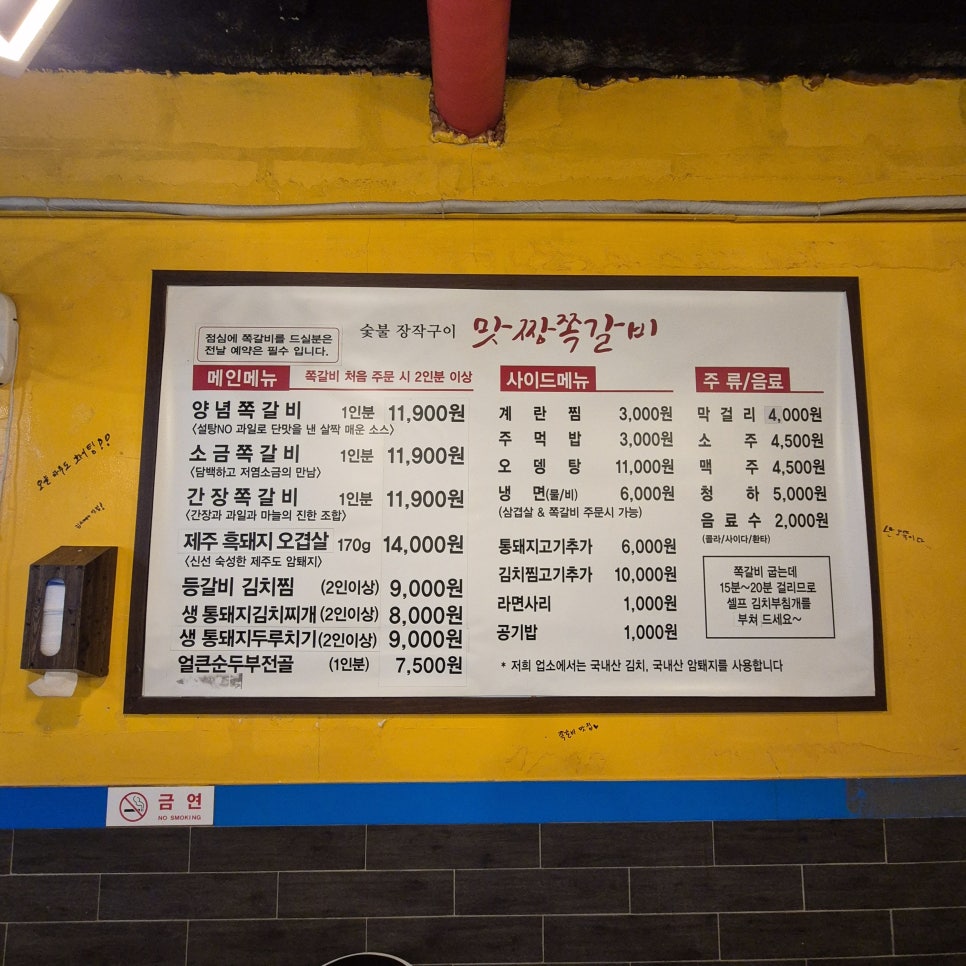 숯불 장작구이 맛짱쪽갈비
점심에 쪽갈비를 드실분은
전날 예약은 필수 입니다.
메인메뉴 쪽갈비 처음 주문 시 2인분 이상
양념쪽갈비 1인분 11,900원
<설탕NO 과일로 단맛을 낸 살짝 매운 소스>
소금쪽갈비 1인분 11,900원
<담백하고 저염소금의 만남>
간장쪽갈비 1인분 11,900원
<간장과 과일과 마늘의 진한 조합>
제주 흑돼지 오겹살 170g 14,000원
<신선 숙성한 제주도 암퇘지>
등갈비 김치찜 (2인이상) 9,000원
생 통돼지김치찌개 (2인이상) 8,000원
생 통돼지두루치기 (2인이상) 9,000원
얼큰순두부전골 (1인분) 7,500원
사이드메뉴
계란찜 3,000원
주먹밥 3,000원
오뎅탕 11,000원
냉면(물/비) 6,000원
(삼겹살 & 쪽갈비 주문시 가능)
통돼지고기추가 6,000원
김치찜고기추가 10,000원
라면사리 1,000원
공기밥 1,000원
* 저희 업소에서는 국내산 김치, 국내산 암퇘지를 사용합니다
주 류/음료
막걸리 4,000원
소주 4,500원
맥주 4,500원
청하 5,000원
음료수 2,000원
(콜라/사이다/환타)
쪽갈비 굽는데
15분~20분 걸리므로
셀프 김치부침개를
부쳐 드세요~
금 연
NO SMOKING